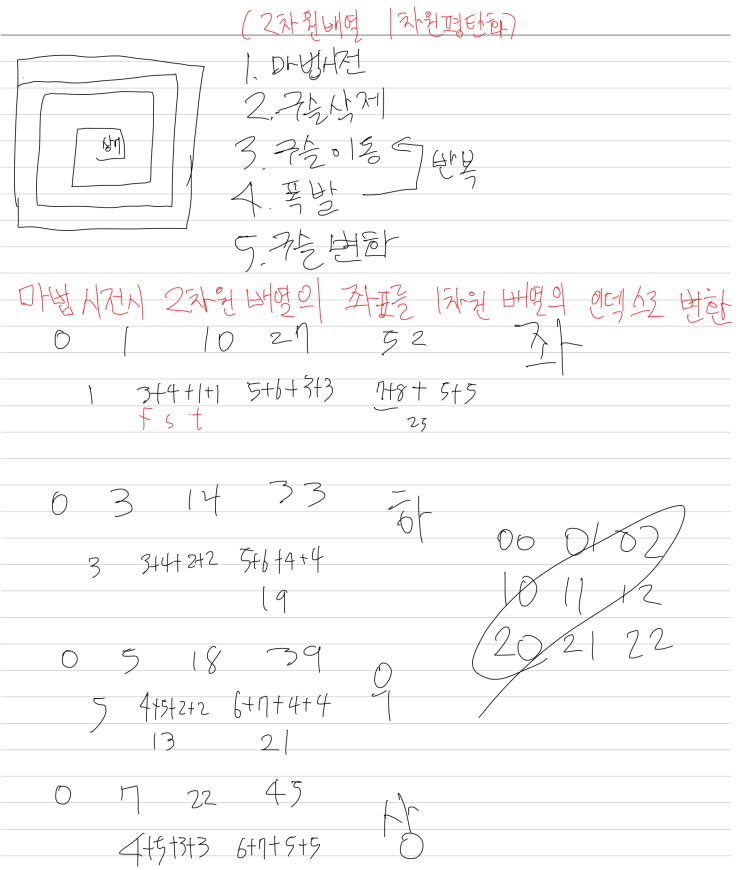 (2차원배열 1차원평탄화)
1. 마법시전
2. 구슬삭제
3. 구슬이동
반복
4. 폭발
5. 구슬변화
상어
마법시전시 2차원 배열의 좌표를 1차원 배열의 인덱스로 변환
0 1 10 27 52 좌
1 3+4+1+1 5+6+3+3 7+8+ 5+5
F s t 25
0 3 14 33 하
3 3+4+2+2 5+6+4+4
19
00 01 02
10 11 12
20 21 22
0 5 18 39 우
5 4+5+2+2 6+7+4+4
13 21
0 7 22 45 상
4+5+3+3 6+7+5+5